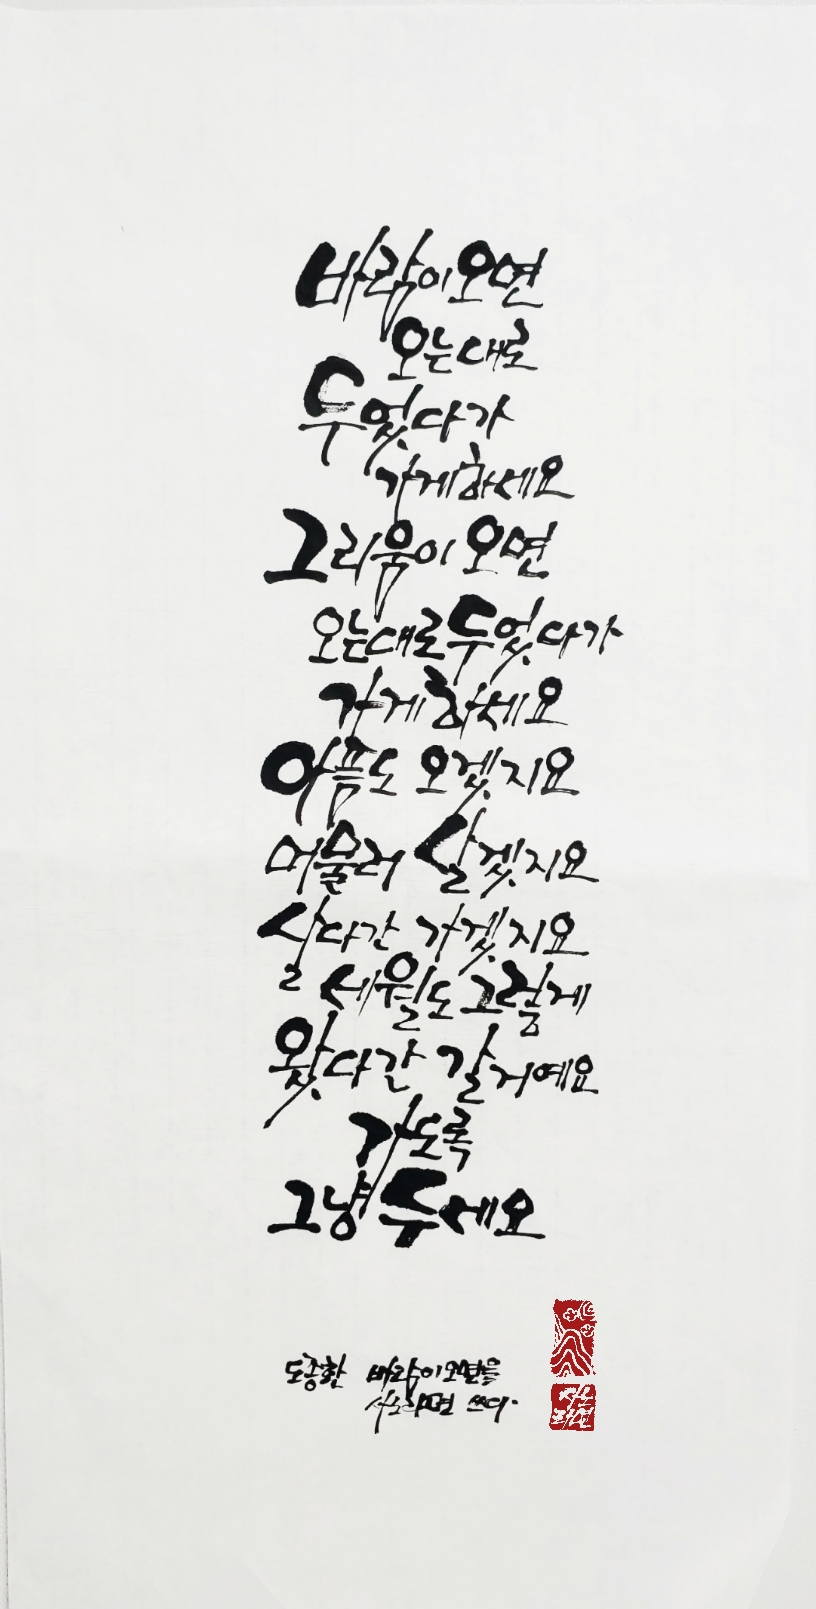 바람이 오면
오는대로
두었다가
가게하세요
그리움이 오면
오는대로 두었다가
가게하세요
아픔도 오겠지요
머물러 살겠지요
살다간 가겠지요
세월도 그렇게
왔다간 갈거예요
가도록
그냥 두세요
도종환 바람이 오면을
쓰다.